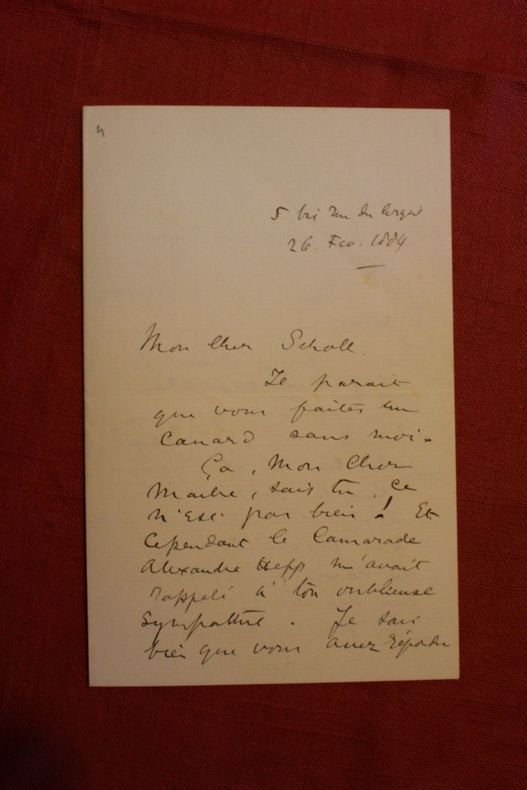 5 bis rue du Cirque
26. Fev. 1884
Mon cher Scholl.
Il parait
que vous faites un
canard sans moi.
Ça, Mon Cher
Maitre, sais tu, ce
n'est pas bien! Et
cependant le Camarade
Alexandre Hepp m'avait
rappelé à ton oublieuse
sympathie. Je sais
bien que vous avez répondu